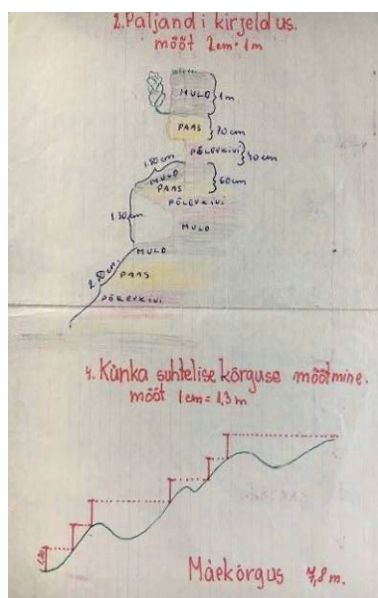 2. Paljandi kirjeldus.
mõõt 2cm = 1m
MULD
1m
PAAS
70 cm
PÕLEVKIVI
1.80cm
MULD
PAAS
60cm
PÕLEVKIVI
1.30cm
MULD
MULD
PAAS
PÕLEVKIVI
4. Künka suhtelise kõrguse mõõtmine.
mõõt 1cm = 1,3 m
Mäekõrgus 7,8 m.